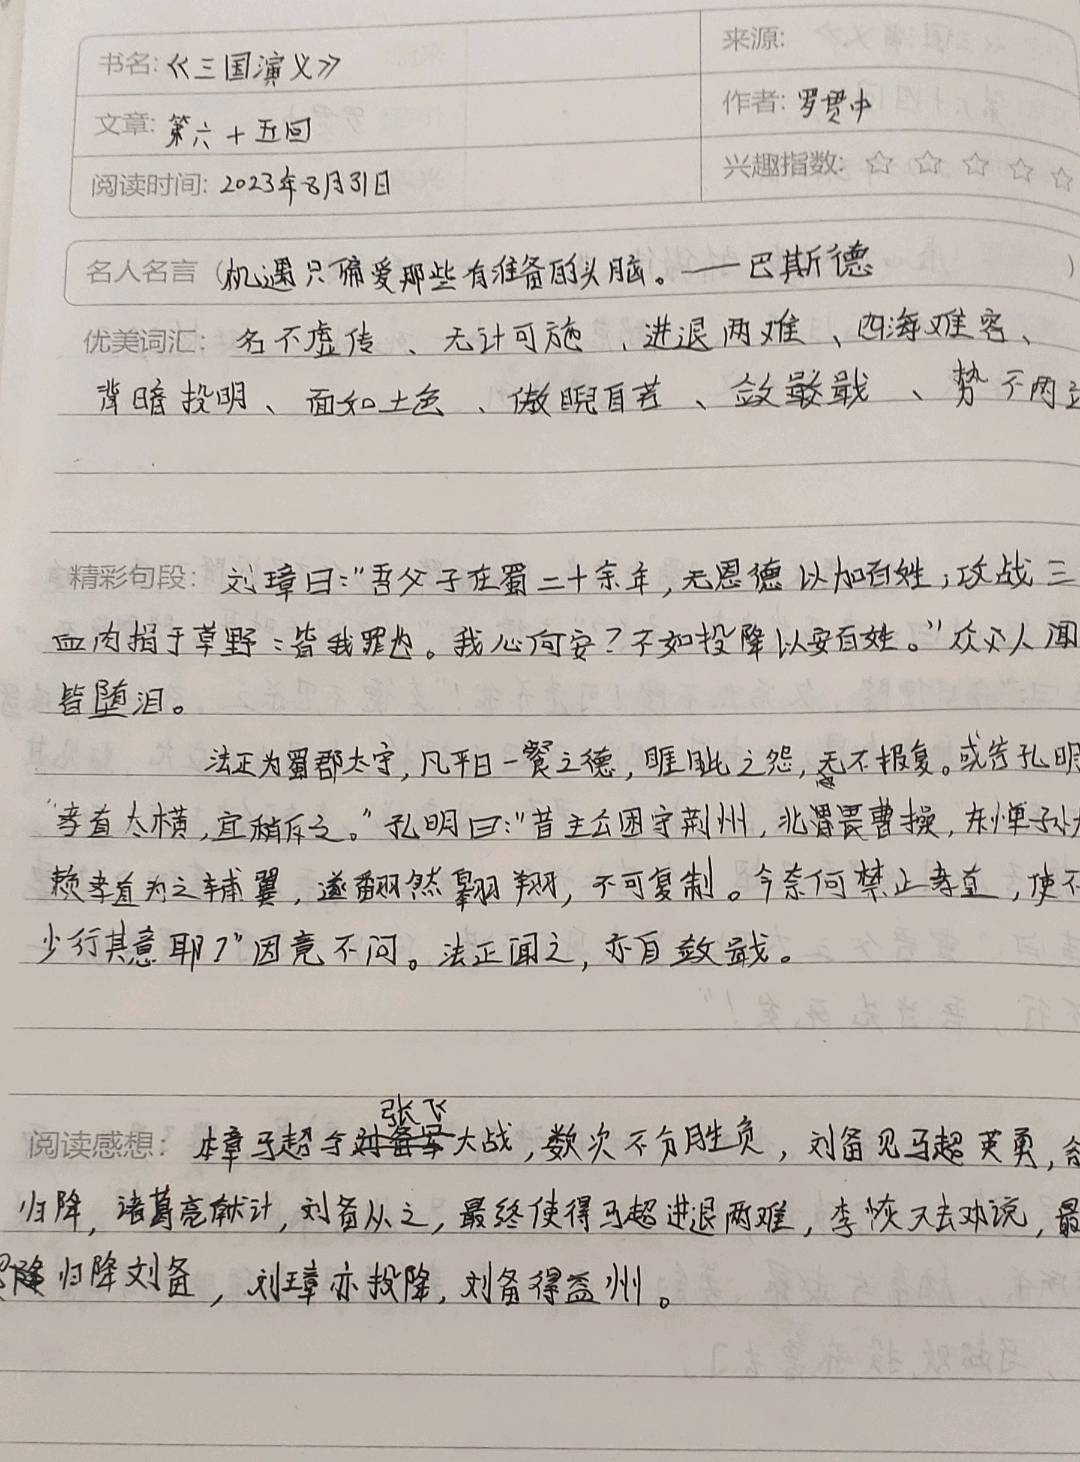 书名:《三国演义》
来源:
文章: 第六十五回
作者: 罗贯中
阅读时间: 2023年8月31日
兴趣指数: ☆ ☆ ☆ ☆ ☆
名人名言 (机遇只偏爱那些有准备的头脑。——巴斯德 )
优美词汇: 名不虚传、无计可施、进退两难、四海难容、
背暗投明、面如土色、傲睨自若、敛戢、势不两立
精彩句段: 刘璋曰:"吾父子在蜀二十余年,无恩德以加百姓;攻战三
血肉捐于草野:皆我罪也。我心何安?不如投降以安百姓。"众人闻
皆堕泪。
法正为蜀郡太守,凡平日一餐之德,睚眦之怨,无不报复。或告孔明
"孝直太横,宜稍斥之。"孔明曰:"昔主公困守荆州,北畏曹操,东惮孙
赖孝直为之辅翼,遂翻然翱翔,不可复制。今奈何禁止孝直,使不
少行其意耶?"因竟不问。法正闻之,亦自敛戢。
阅读感想: 本章马超与张飞大战,数次不分胜负,刘备见马超英勇,
归降,诸葛亮献计,刘备从之,最终使得马超进退两难,李恢又去劝说,最
归降刘备,刘璋亦投降,刘备得益州。